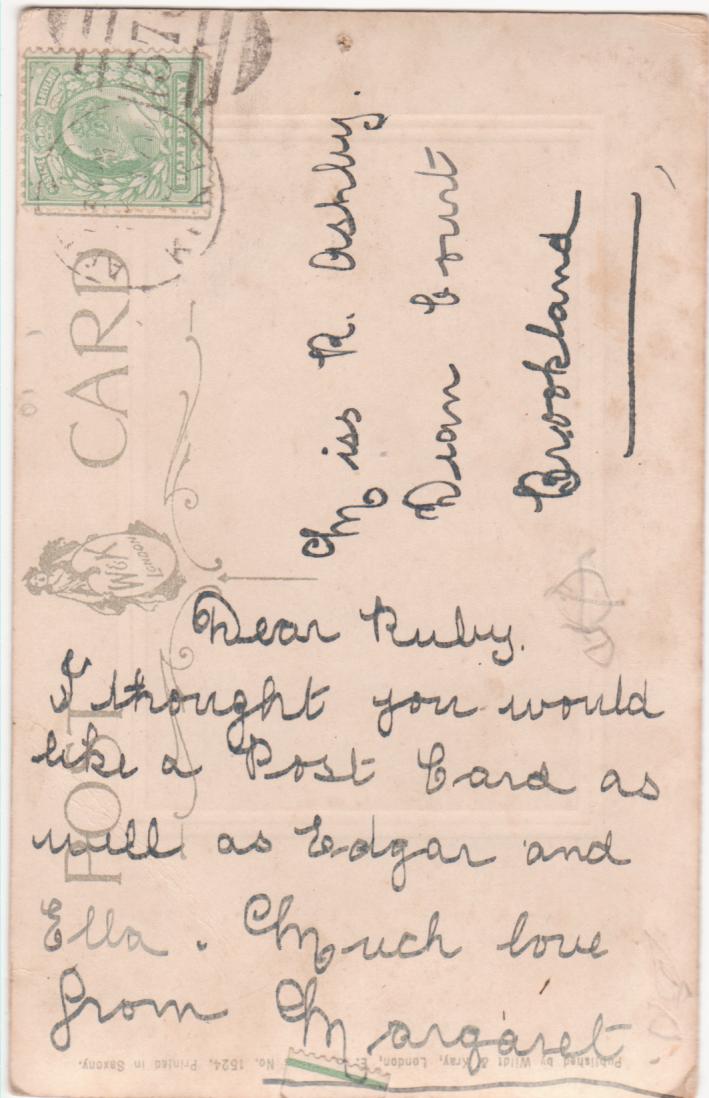 POST CARD
W&K
LONDON
HALFPENNY
Miss R. Ashby.
Dean Court
Brookland
Dear Ruby.
I thought you would
like a Post Card as
will as Edgar and
Ella. Much love
from Margaret
Published by Wildt & Kray, London, E.
No. 1524, Printed in Saxony.